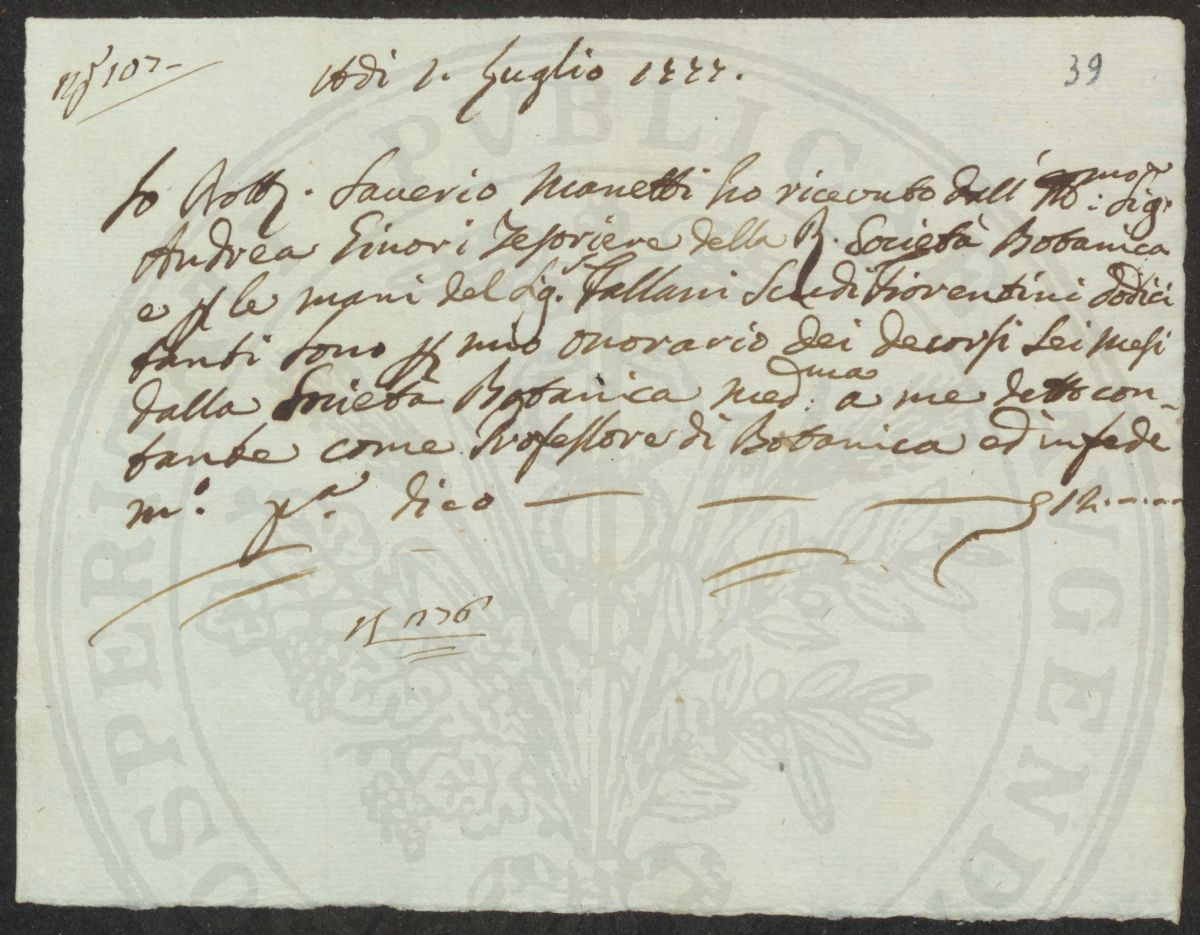 N° 107
39
Adi 1. Luglio 1777.
Io Dott. Saverio Manetti ho ricevuto dall' Sig.
Andrea Ginori Tesoriere della R. Società Botanica
e p le mani del Sig. Tallani Scudi Fiorentini dodici
tanti sono p mio onorario dei decorsi sei mesi
dalla Società Botanica med:ma a me detto con-
tante come Professore di Botanica ed in fede
m° pa dico 12.-.-
PROSPERITATI PVBLICAE AVGENDAE